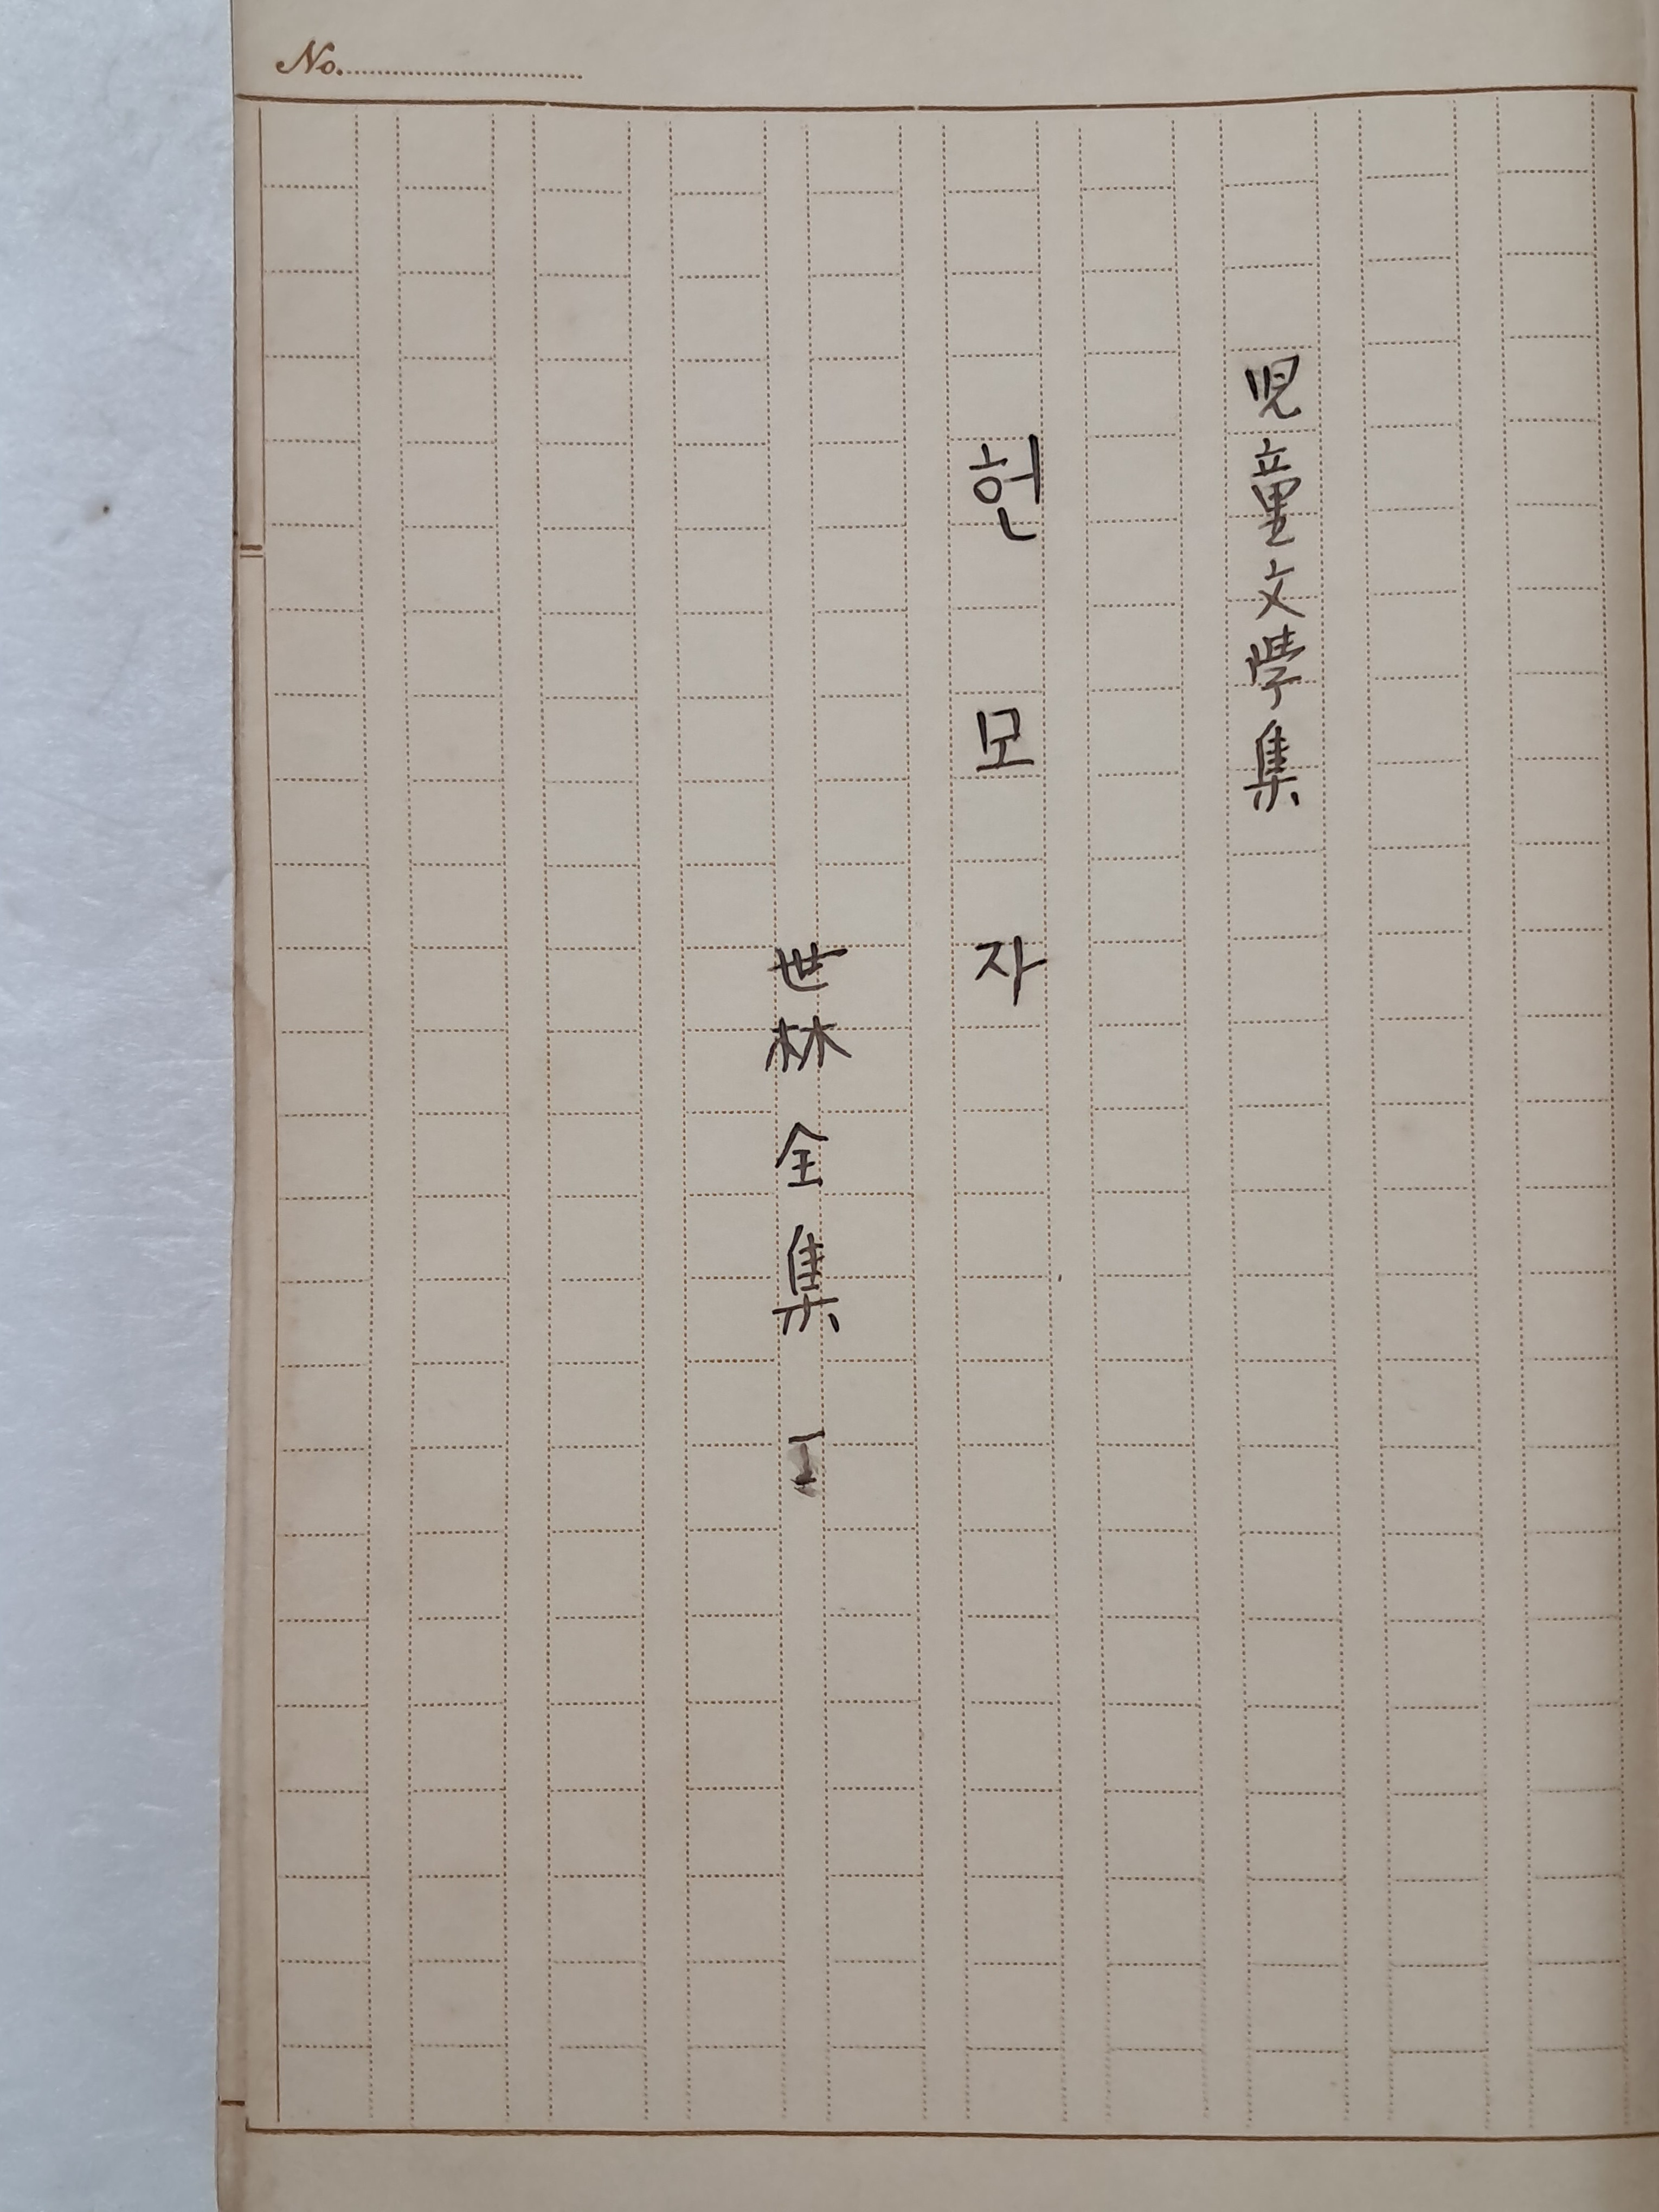 No.
児童文學集
헌모자
世林全集 I